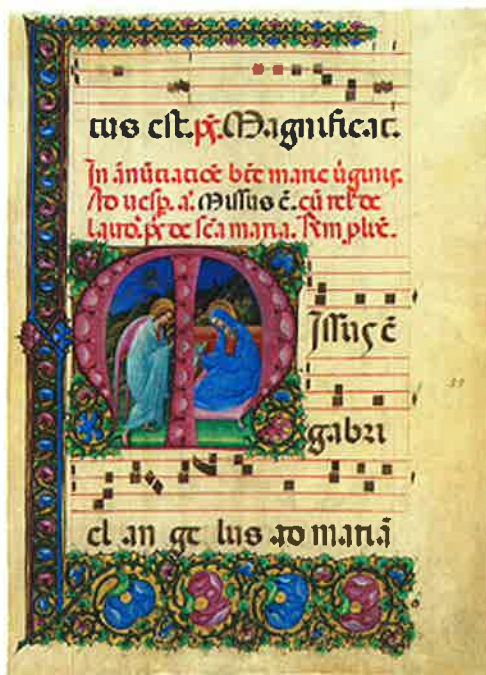 tus est. ps̃. Magnificat.
In ãnũtiatiõe bẽte marie ṽginis.
Ad uesp. añ. Missus ẽ. cũ rel de
laud. ps̃ de sc̃a maria.
MIssus ẽ
gabri
el an ge lus ad mariã